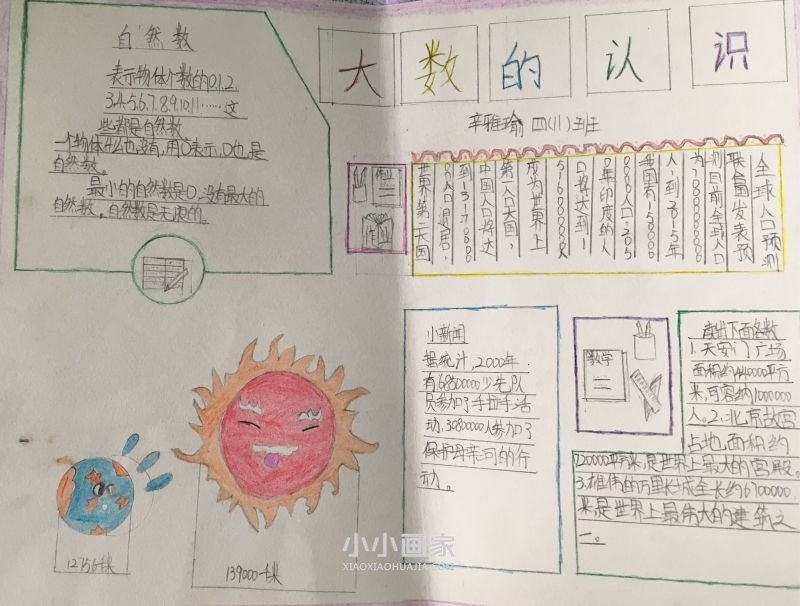 大数的认识
辛雅瑜 四(11)班
自然数
表示物体个数的0.1.2.
3.4.5.6.7.8.9.10.11……这
些都是自然数
一个物体也没有,用0表示,0也是
自然数。
最小的自然数是0,没有最大的
自然数。自然数是无限的。
全球人口预测
联合国发表预
测目前全球人口
人,到2015年
我国有
年印度的人
口将达到1
成为世界上
第一人口大国,
中国人口将达
人口退居,
世界第二大国
作业
作业
小新闻
据统计,2000年
有6850000少先队
员参加了手拉手活
动,3080000人参加了
保护母亲河的行
动。
数学
读出下面各数
1.天安门广场
面积约440000平方
米,可容纳1000000
人。2.北京故宫
占地面积约
720000平方米,是世界上最大的宫殿。
3.雄伟的万里长城全长约6700000
米是世界上最伟大的建筑之
一。
12756千米
139000千米
小小画家
XIAOXIAOHUAJIA.COM